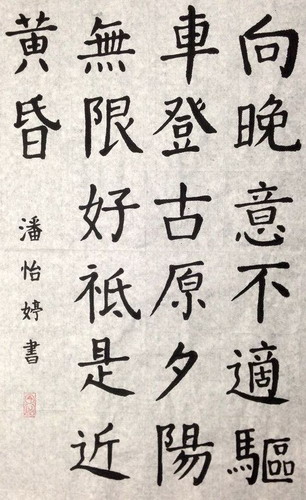 向晚意不適驅
車登古原夕陽
無限好祗是近
黃昏
潘怡婷書